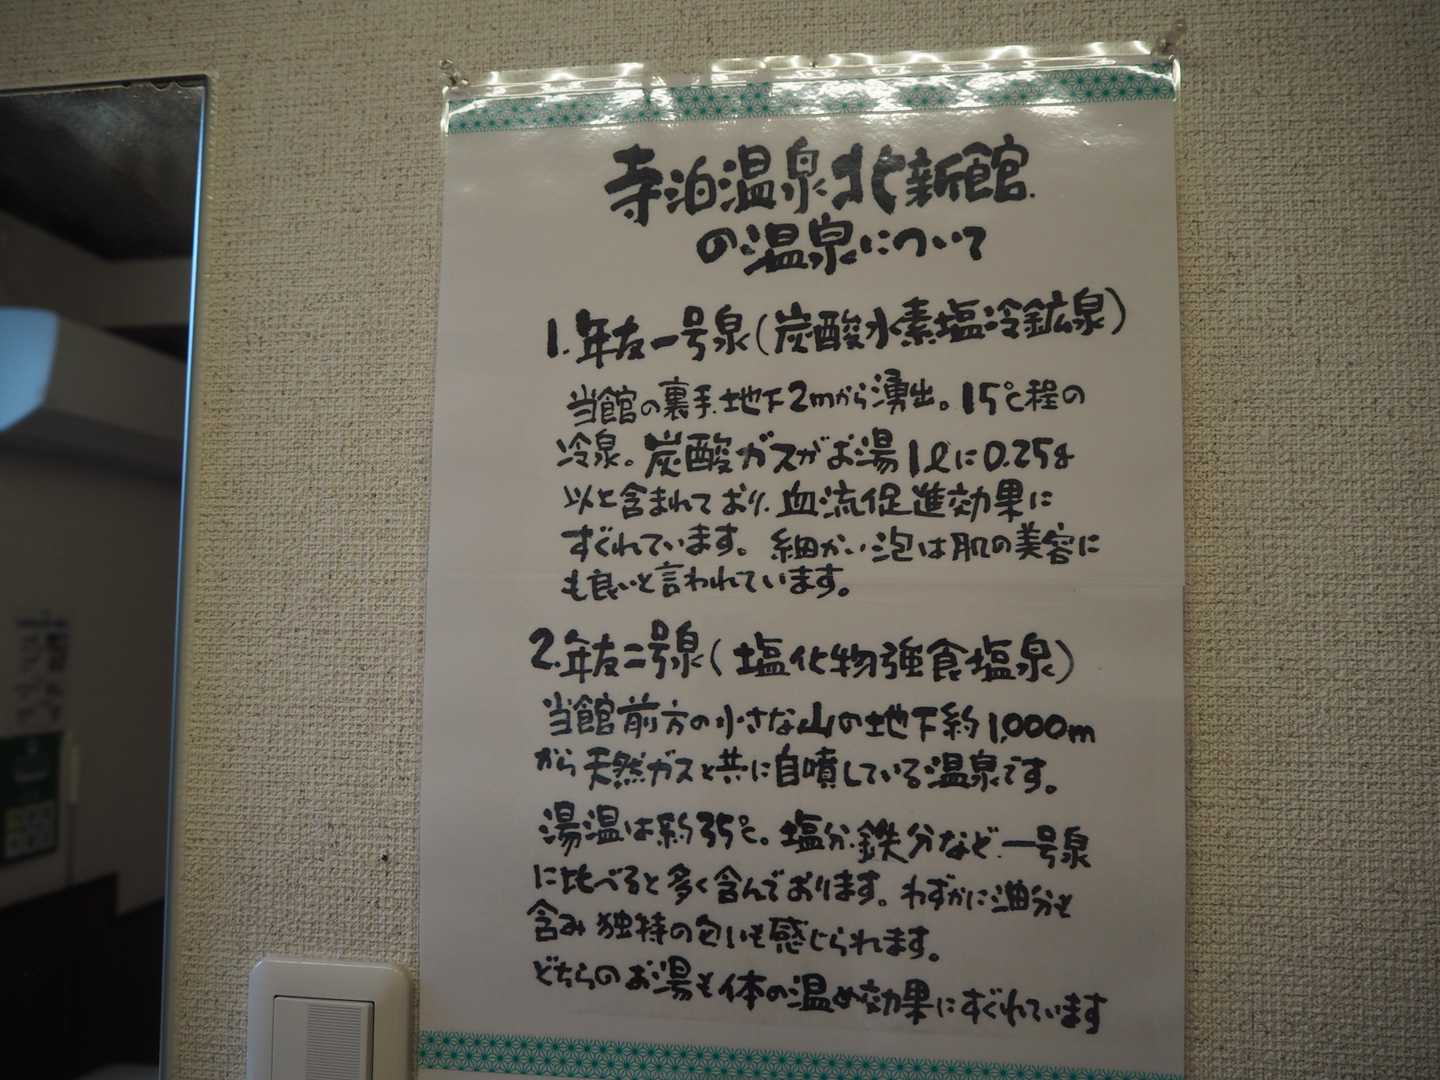 寺泊温泉北新館
の温泉について
1.年友一号泉(炭酸水素塩冷鉱泉)
当館の裏手.地下2mから湧出。15℃程の
冷泉。炭酸ガスがお湯1ℓに0.25g
以上含まれており.血流促進効果に
すぐれています。細かい泡は肌の美容に
も良いと言われています。
2.年友二号泉(塩化物強食塩泉)
当館前方の小さな山の地下約1,000m
から天然ガスと共に自噴している温泉です。
湯温は約35℃。塩分.鉄分など.一号泉
に比べると多く含んでおります。わずかに油分も
含み独特の匂いも感じられます。
どちらのお湯も体の温め効果にすぐれています